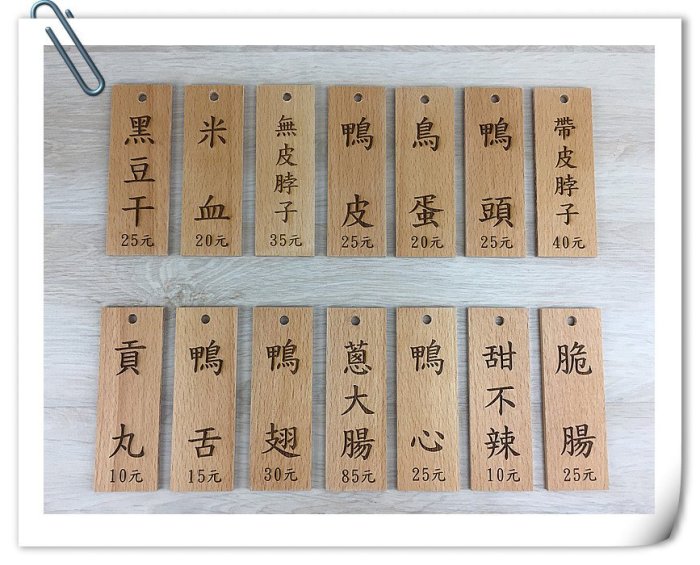 黑豆干
25元
米血
20元
無皮脖子
35元
鴨皮
25元
鳥蛋
20元
鴨頭
25元
帶皮脖子
40元
貢丸
10元
鴨舌
15元
鴨翅
30元
蔥大腸
85元
鴨心
25元
甜不辣
10元
脆腸
25元